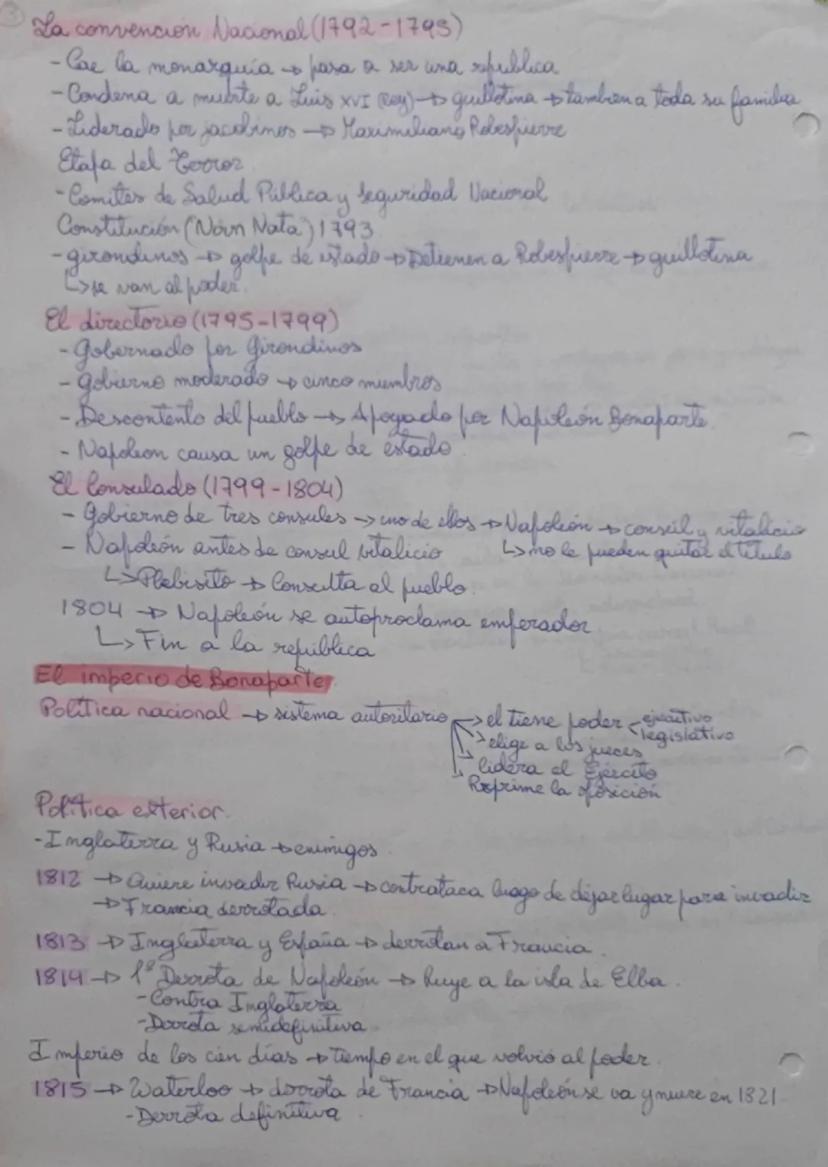 3
La convención Nacional (1792-1795)
- Cae la monarquía → pasa a ser una republica
- Condena a muerte a Luis XVI (Rey) → guillotina → tambien a toda su familia
- Liderado por jacobinos → Maximiliano Robespierre
Etapa del Terror
- Comites de Salud Pública y Seguridad Nacional
Constitución (Non Nata) 1793
- girondinos → golpe de estado → Detienen a Robespierre → guillotina
↳ se van al poder.
El directorio (1795-1799)
- Gobernado por Girondinos
- gobierno moderado → cinco miembros
- Descontento del pueblo → Apoyado por Napoleón Bonaparte
- Napoleon causa un golpe de estado
El Consulado (1799-1804)
- Gobierno de tres consules → uno de ellos → Napoleón → consul y vitalicio
- Napoleón antes de consul vitalicio ↳ no le pueden quitar el título
↳ Plebisito → Consulta al pueblo.
1804 → Napoleón se autoproclama emperador
↳ Fin a la república
El imperio de Bonaparte
Política nacional → sistema autoritario → el tiene poder - ejecutivo
legislativo
→ elige a los jueces
lidera el Ejercito
Reprime la oposición
Política exterior.
- Inglaterra y Rusia → enimigos
1812 → Quiere invadir Rusia → contrataca luego de dejar lugar para invadir
→ Francia derrotada
1813 → Inglaterra y España → derrotan a Francia.
1814 → 1ª Derrota de Napoleón → huye a la isla de Elba.
- Contra Inglaterra
- Derrota semidefinitiva
Imperio de los cien días → tiempo en el que volvió al poder.
1815 → Waterloo → derrota de Francia → Napoleón se va y muere en 1821
- Derrota definitiva